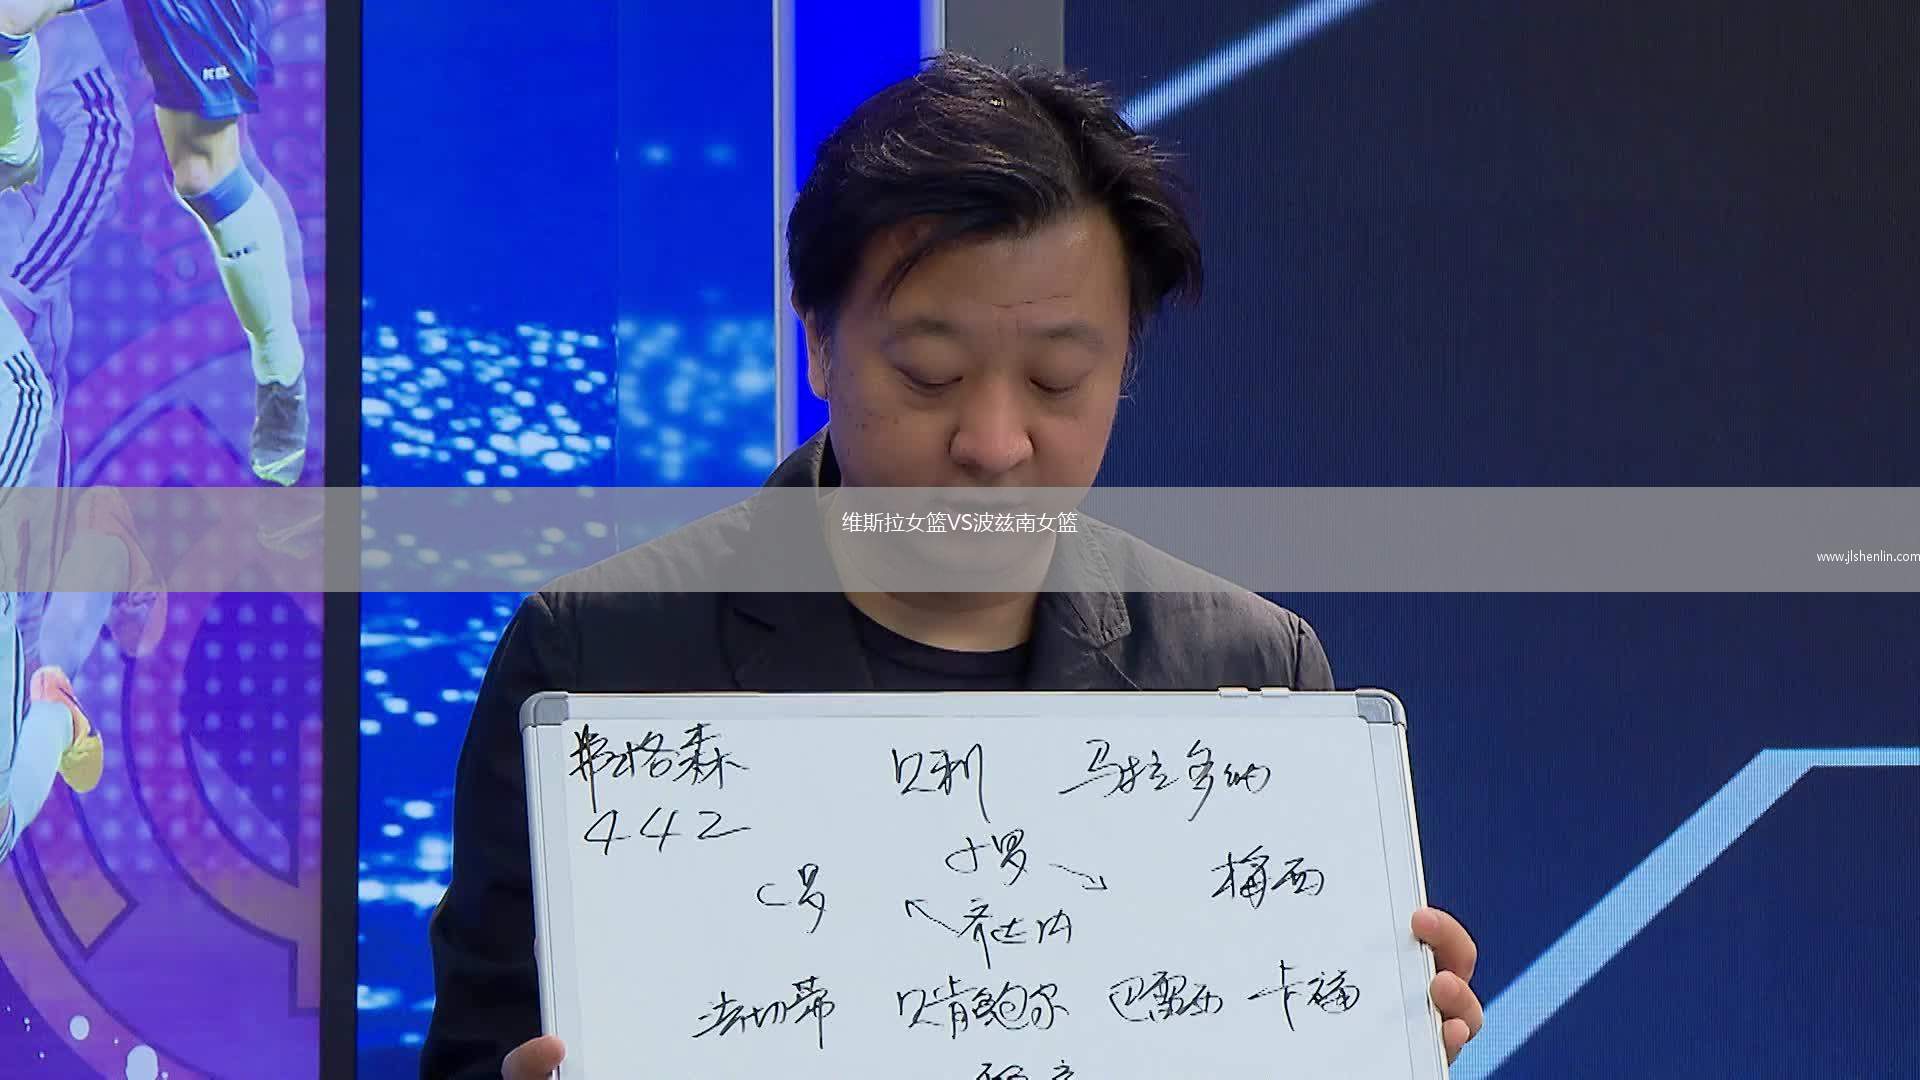 维斯拉女篮VS波兹南女篮
www.jlshenlin.com
弗格森 贝利 马拉多纳
442
小罗
C罗 梅西
齐达内
法切蒂 贝肯鲍尔 巴雷西 卡福